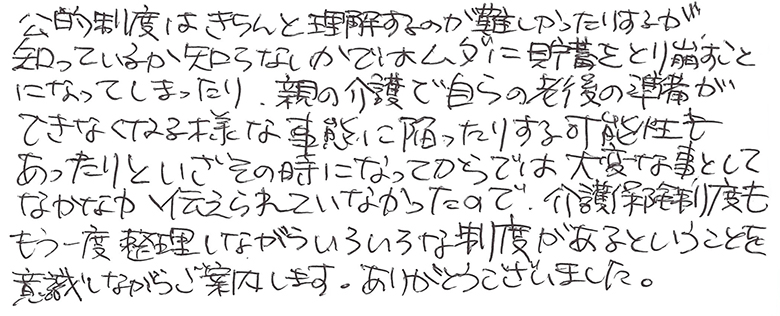 公的制度はきちんと理解するのが難しかったりするが
知っているか知らないかではムダに貯蓄をとり崩すこと
になってしまったり、親の介護で自らの老後の準備が
できなくなる様な事態に陥ったりする可能性も
あったりといざその時になってからでは大変な事として
なかなか伝えられていなかったので、介護保険制度も
もう一度整理しながらいろいろな制度があるということを
意識しながらご案内します。ありがとうございました。